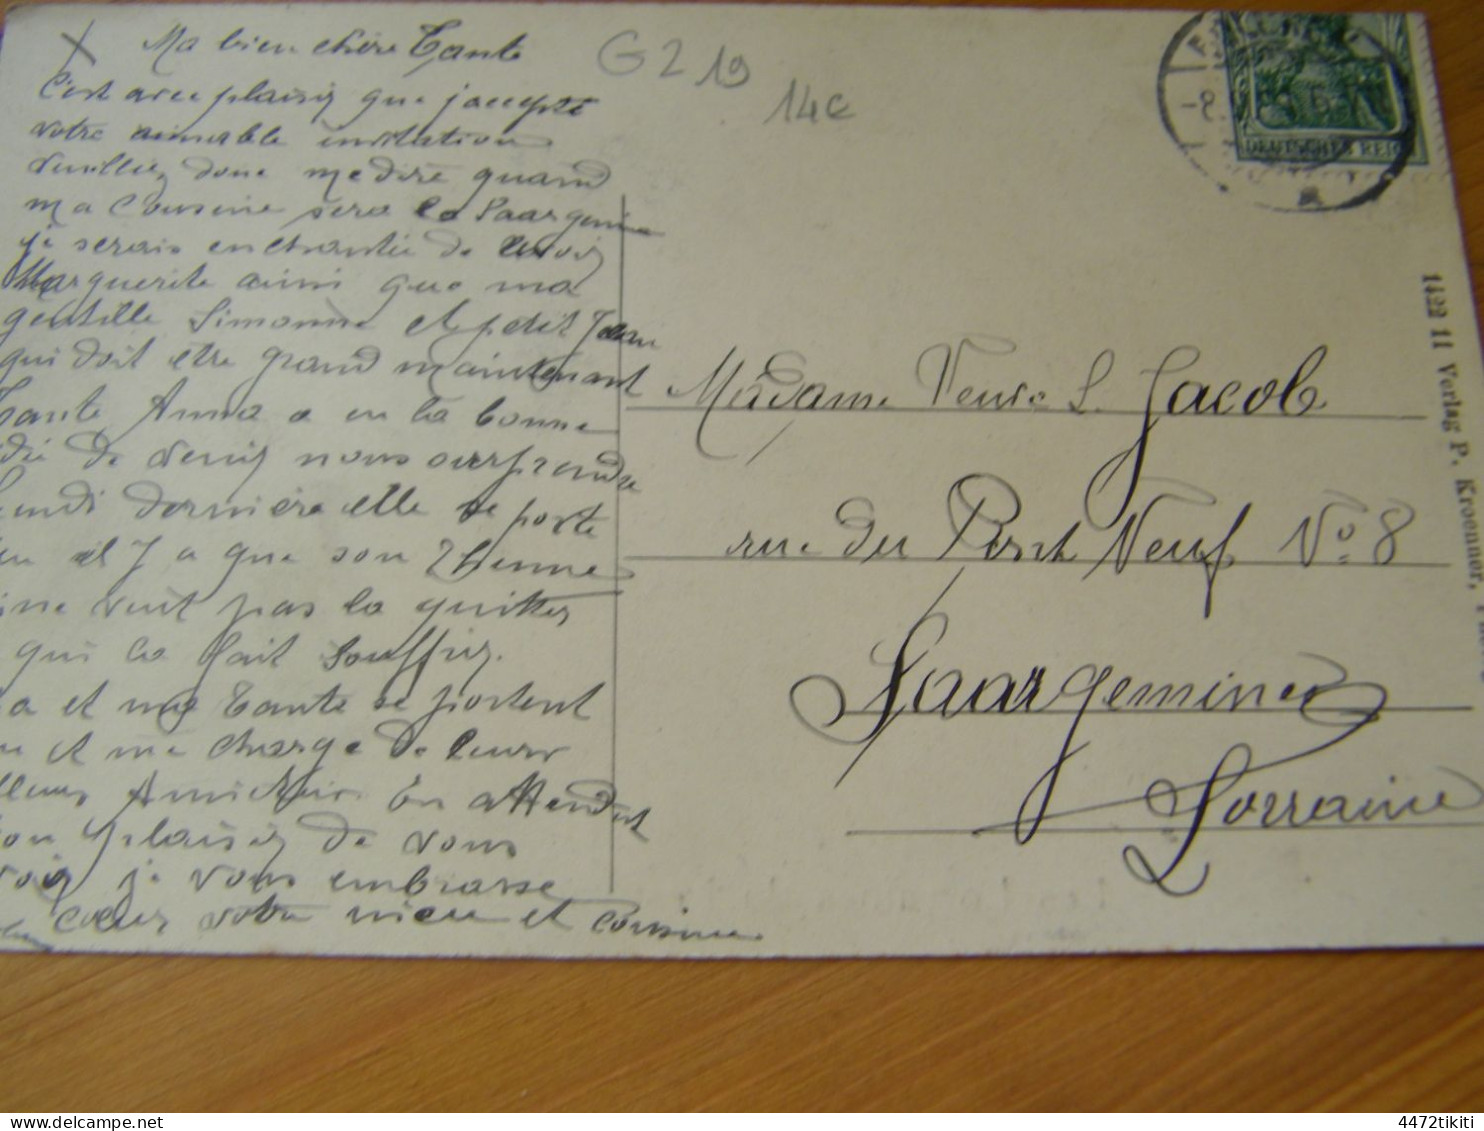 Ma bien chère Tante
C'est avec plaisir que j'accepte
votre aimable invitation
veuillez donc me dire quand
ma Cousine sera la Saargemine
je serais enchantée de revoir
Marguerite ainsi que ma
gentille Simonne et petit Jean
qui doit etre grand maintenant
Tante Anna a eu la bonne
de venir nous surprendre
Lundi dernière elle se porte
il y a que son Rhume
ne veut pas la quitter
qui la fait souffrir.
et ma tante se portent
et me charge de leurs
Amitiés. En attendant
plaisir de vous
voir je vous embrasse
cœur votre nièce et cousine
G219
14e
DEUTSCHES REICH
Madame Veuve S. Jacob
rue du Port Neuf No. 8
Saargemines
Lorraine
1422 11 Verlag P. Kroemner,